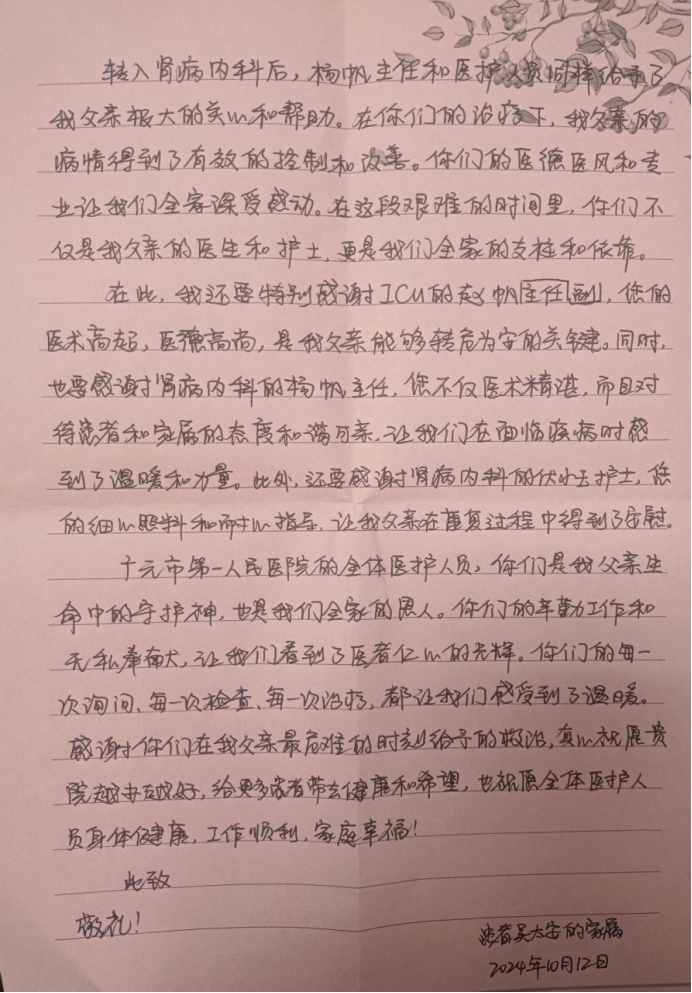 转入肾病内科后，杨帆主任和医护人员同样给予了
我父亲极大的关心和帮助。在你们的治疗下，我父亲的
病情得到了有效的控制和改善。你们的医德医风和专
业让我们全家深受感动。在这段艰难的时间里，你们不
仅是我父亲的医生和护士，更是我们全家的支柱和依靠。
在此，我还要特别感谢ICU的赵帆主任副，您的
医术高超，医德高尚，是我父亲能够转危为安的关键。同时，
也要感谢肾病内科的杨帆主任，您不仅医术精湛，而且对
待患者和家属的态度和蔼可亲，让我们在面临疾病时感
到了温暖和力量。此外，还要感谢肾病内科的伏小玉护士，您
的细心照料和耐心指导，让我父亲在康复过程中得到了安慰。
广元市第一人民医院的全体医护人员，你们是我父亲生
命中的守护神，也是我们全家的恩人。你们的辛勤工作和
无私奉献，让我们看到了医者仁心的光辉。你们的每一
次询问、每一次检查、每一次治疗，都让我们感受到了温暖。
感谢你们在我父亲最危难的时刻给予的救治，真心祝愿贵
院越办越好，给更多患者带去健康和希望，也祝愿全体医护人
员身体健康，工作顺利，家庭幸福！
此致
敬礼！
患者吴大安的家属
2024年10月12日